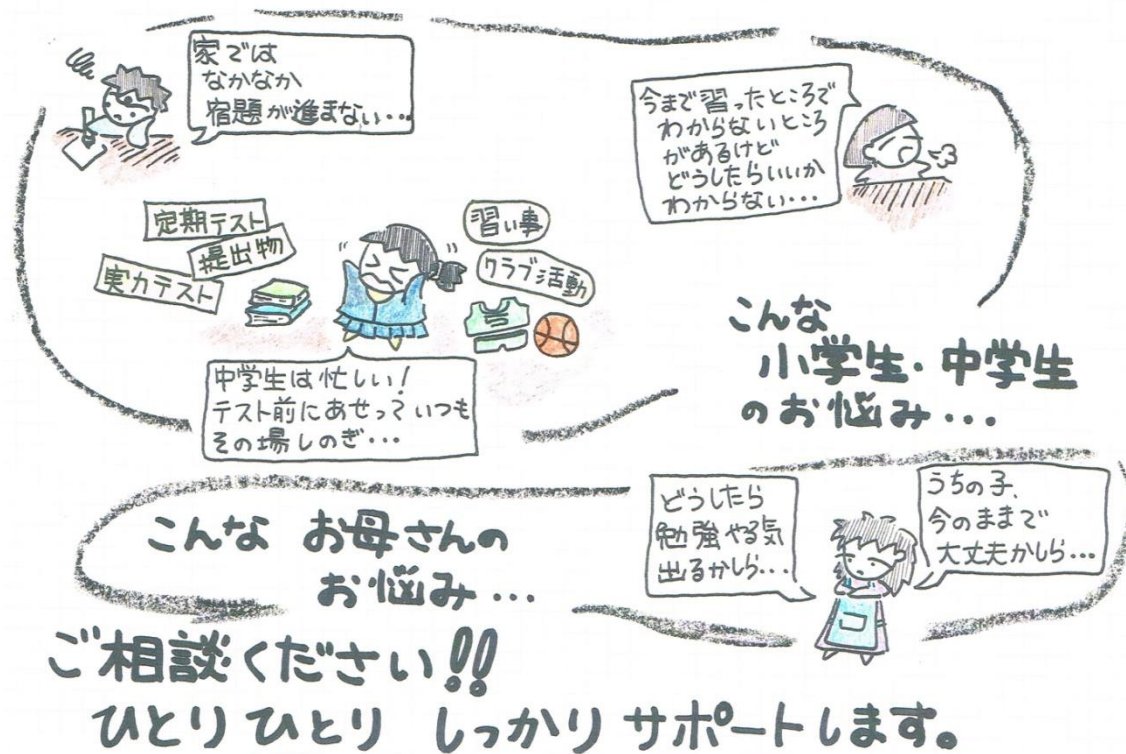 家では
なかなか
宿題が進まない・・・
今まで習ったところで
わからないところ
があるけど
どうしたらいいか
わからない・・・
定期テスト
提出物
実力テスト
習い事
クラブ活動
中学生は忙しい!
テスト前にあせっていつも
その場しのぎ・・・
こんな
小学生・中学生
のお悩み・・・
どうしたら
勉強やる気
出るかしら・・・
うちの子、
今のままで
大丈夫かしら・・・
こんな お母さんの
お悩み・・・
ご相談ください!!
ひとりひとり しっかりサポートします。